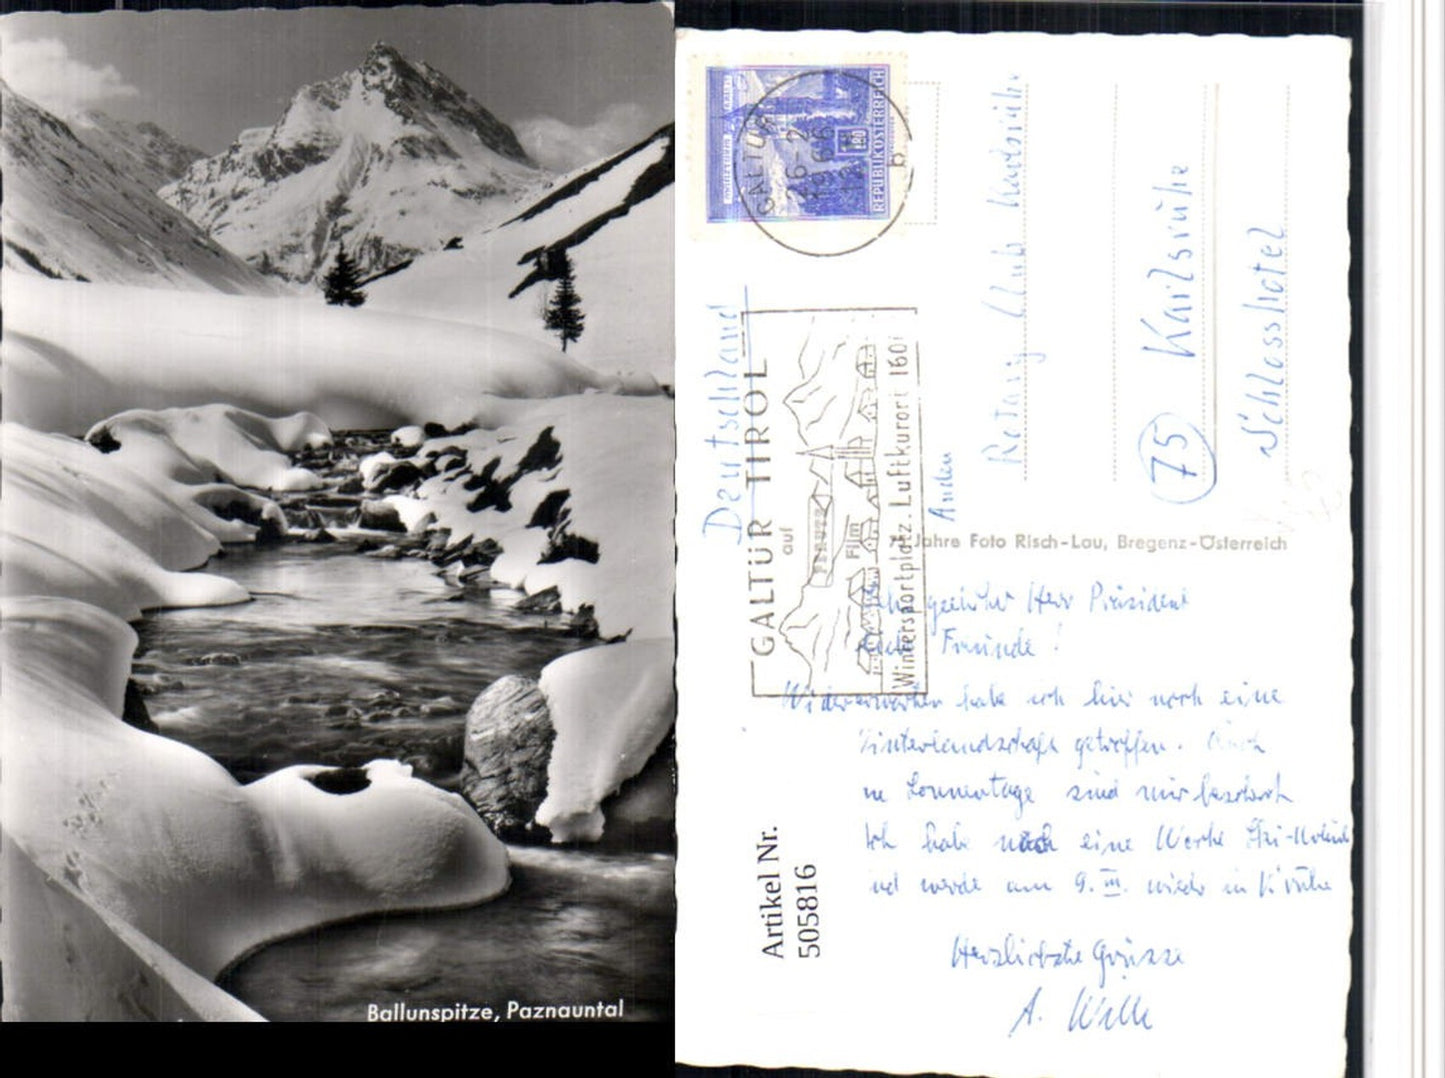 Ballunspitze, Paznauntal
REPUBLIK ÖSTERREICH
1.80
GALTÜR
26-2
b
Deutschland
GALTÜR TIROL
auf
Film
Wintersportplatz. Luftkurort 160
An den
Rotary Club Karlsruhe
75 Karlsruhe
Schlosshotel
Jahre Foto Risch-Lau, Bregenz-Österreich
geehrter Herr Präsident
Freunde!
Wider erwarten habe ich hier noch eine
Winterlandschaft getroffen. Auch
Sonnentage sind mir beschert
Ich habe noch eine Woche Ski-Urlaub
und werde am 9. III. wieder in K'ruhe
Herzlichste Grüsse
A. Wille
Artikel Nr.
505816